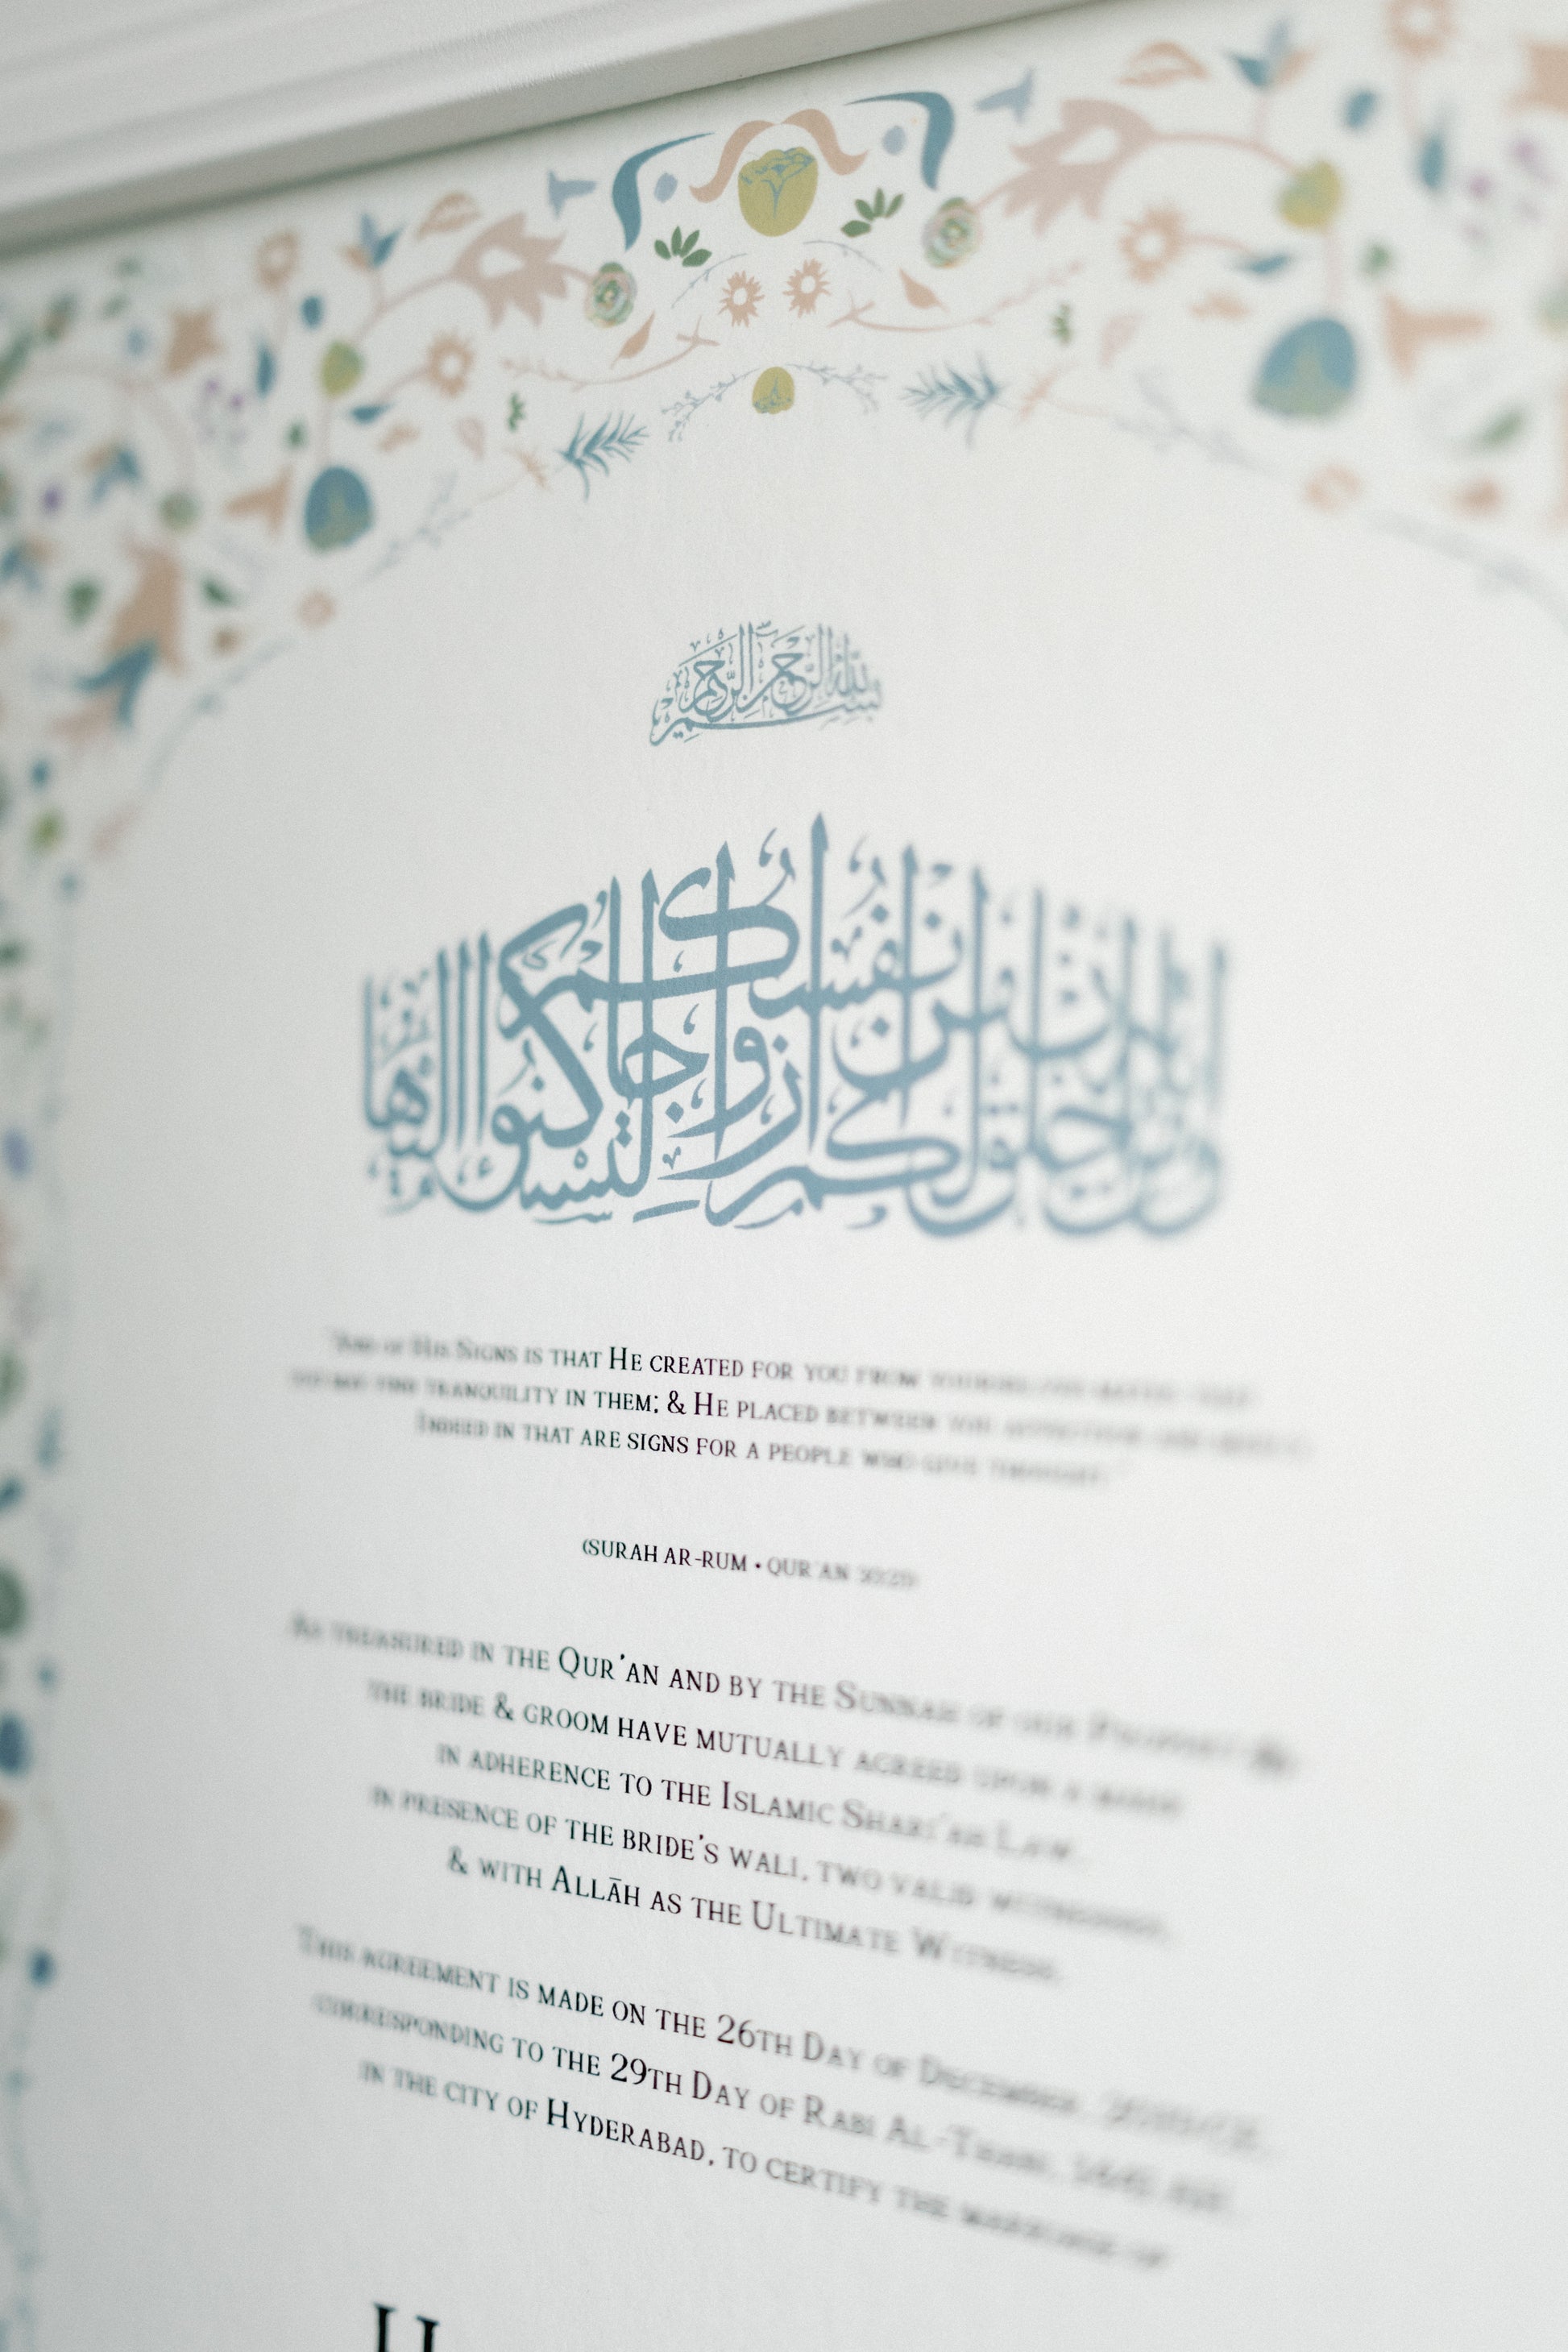 بِسْمِ اللَّهِ الرَّحْمَٰنِ الرَّحِيمِ
وَمِنْ آيَاتِهِ أَنْ خَلَقَ لَكُمْ مِنْ أَنْفُسِكُمْ أَزْوَاجًا لِتَسْكُنُوا إِلَيْهَا
"And of His Signs is that He created for you from
tranquility in them; & He placed between you
Indeed in that are signs for a people who give thought."
(Surah Ar-Rum • Qur'an
As treasured in the Qur'an and by the Sunnah of our Prophet
the bride & groom have mutually agreed upon a
in adherence to the Islamic Shari'ah Law,
in presence of the bride's wali, two valid witnesses,
& with Allāh as the Ultimate Witness.
This agreement is made on the 26th Day of December,
corresponding to the 29th Day of Rabi Al-Thani,
in the city of Hyderabad, to certify the marriage of